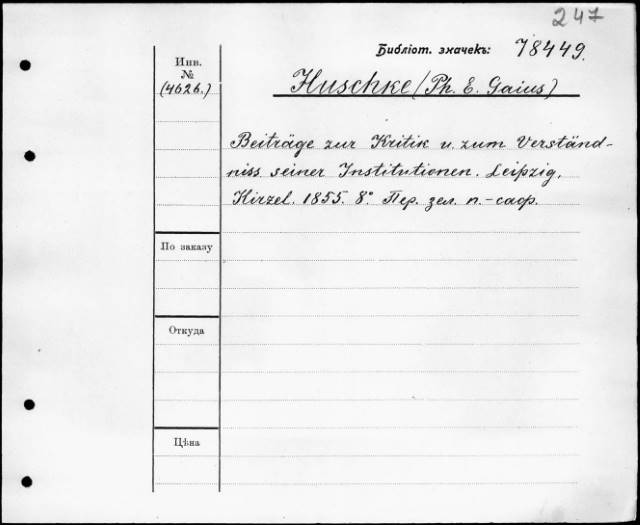 247
Библіот. значекъ: 78449.
Инв.
№
(4626.)
Huschke (Ph. E. Gaius)
Beiträge zur Kritik u. zum Verständ-
niss seiner Institutionen. Leipzig,
Hirzel. 1855. 8° Пер. зел. п.-саф.
По заказу
Откуда
Цѣна